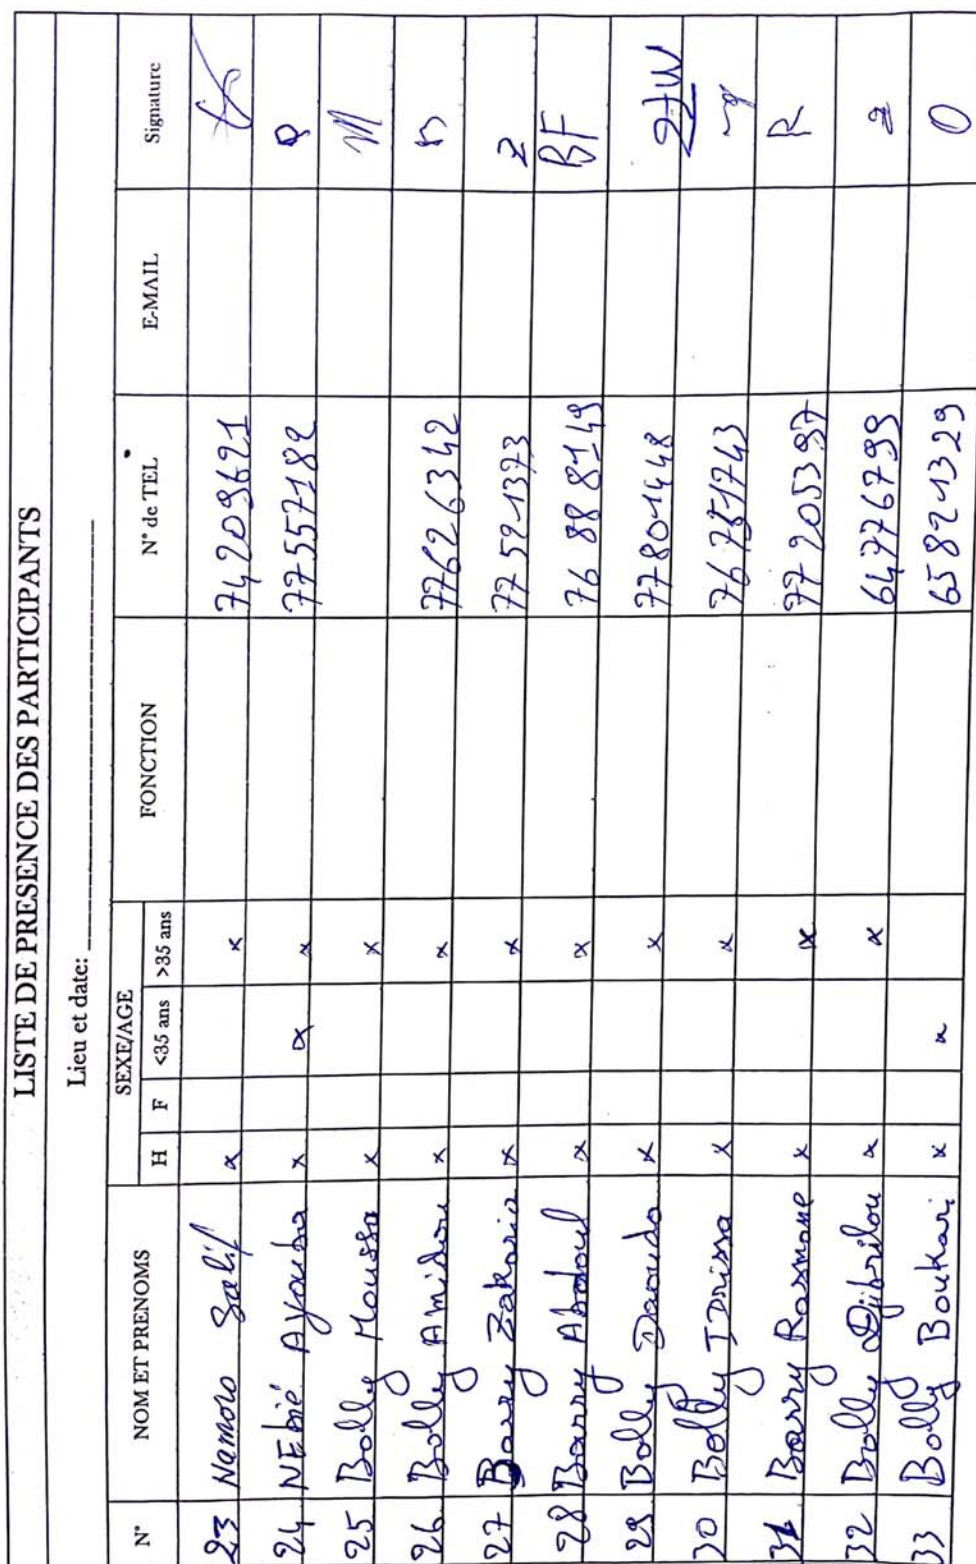 LISTE DE PRESENCE DES PARTICIPANTS
Lieu et date:
N° NOM ET PRENOMS SEXE/AGE FONCTION N° de TEL E-MAIL Signature
H F <35 ans >35 ans
23 Salif x x 74209621
24 NEbié Ayouba x x x 77557182
25 Bolly Moussa x x M
26 Bolly Amidou x x 77626342
27 Barry Zakaria x x 77591373 Z
28 Barry Abdoul x x 76888149 BF
29 Bolly Daouda x x 77801448
30 Bolly Idrissa x x 76781743
31 Barry Rasmane x x 77205397 R
32 Bolly Djibrilou x x 64776799
33 Bolly Boukari x x 65821329 O